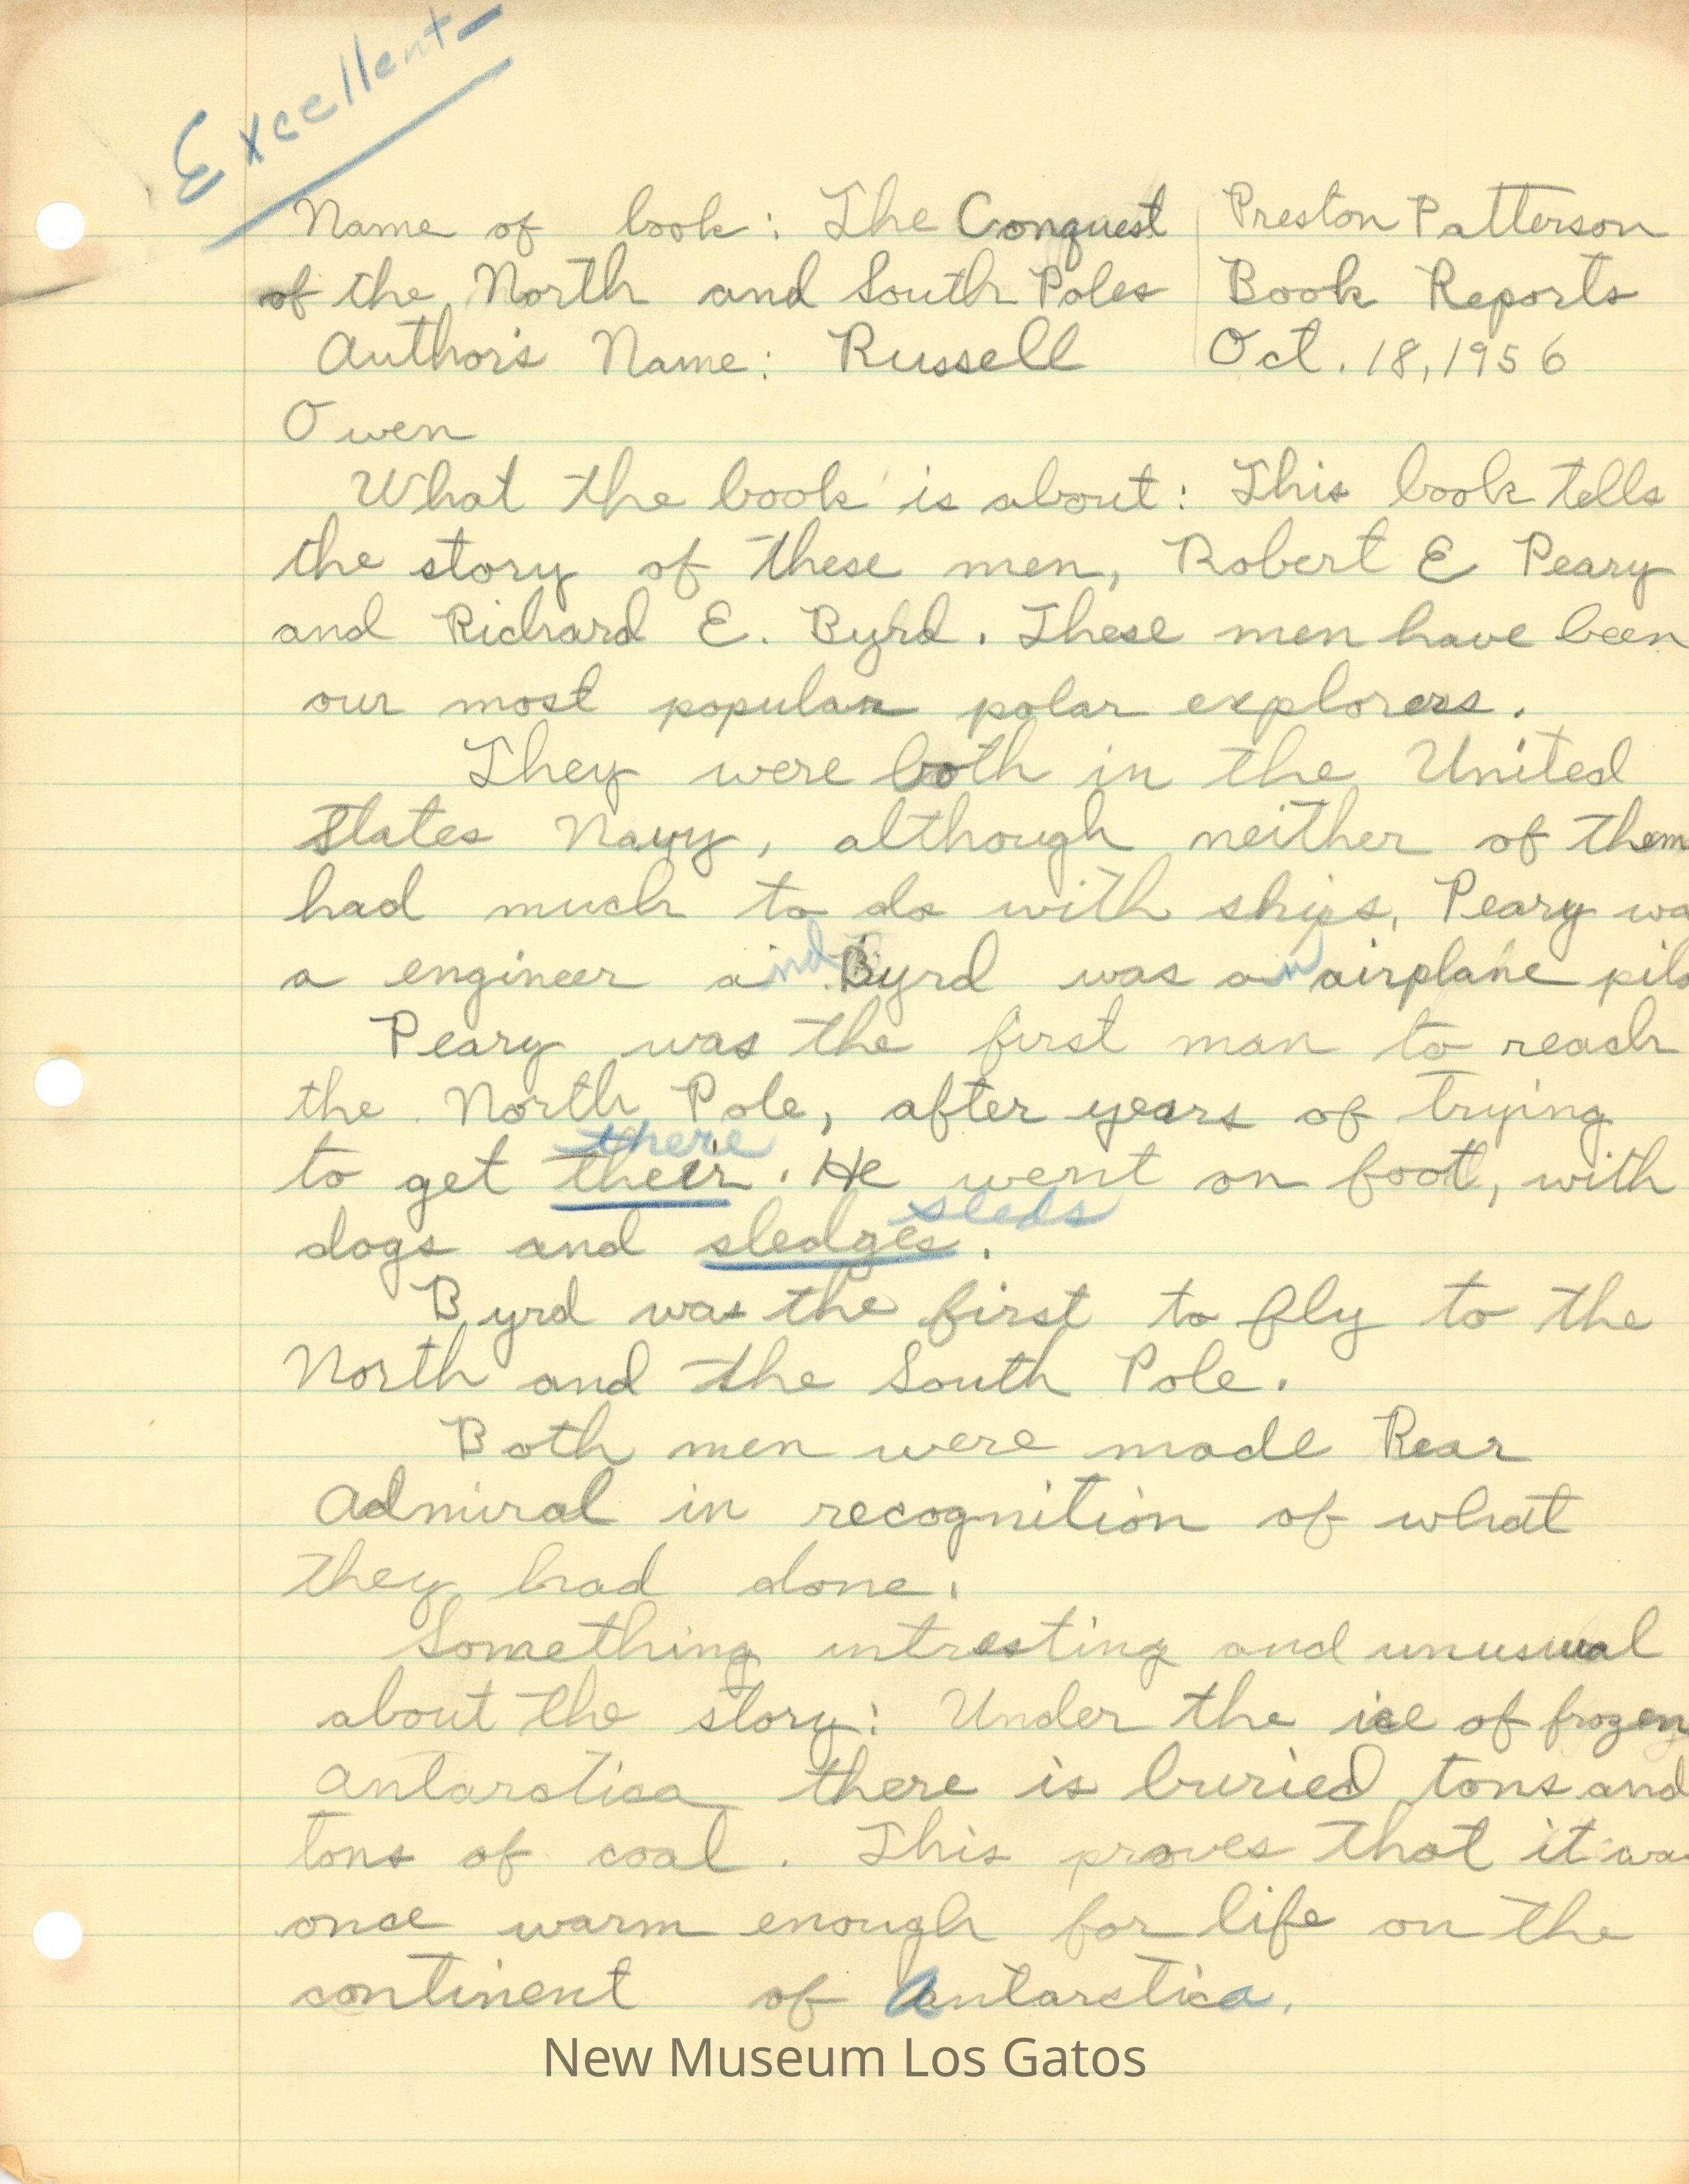 Excellent
Name of book: The Conquest
of the North and South Poles
Author's Name: Russell
Owen
Preston Patterson
Book Reports
Oct. 18, 1956
What the book is about: This book tells
the story of these men, Robert E Peary
and Richard E. Byrd. These men have been
our most popular polar explorers.
They were both in the United
States Navy, although neither of them
had much to do with ships, Peary wa
a engineer and Byrd was an airplane pilo
Peary was the first man to reach
the North Pole, after years of trying
there
to get their. He went on foot, with
sleds
dogs and sledges.
Byrd was the first to fly to the
North and the South Pole.
Both men were made Rear
Admiral in recognition of what
they had done.
Something intresting and unusual
about the story: Under the ice of frozen
Antarctica there is buried tons and
tons of coal. This proves that it wa
once warm enough for life on the
continent of Antarctica.
New Museum Los Gatos